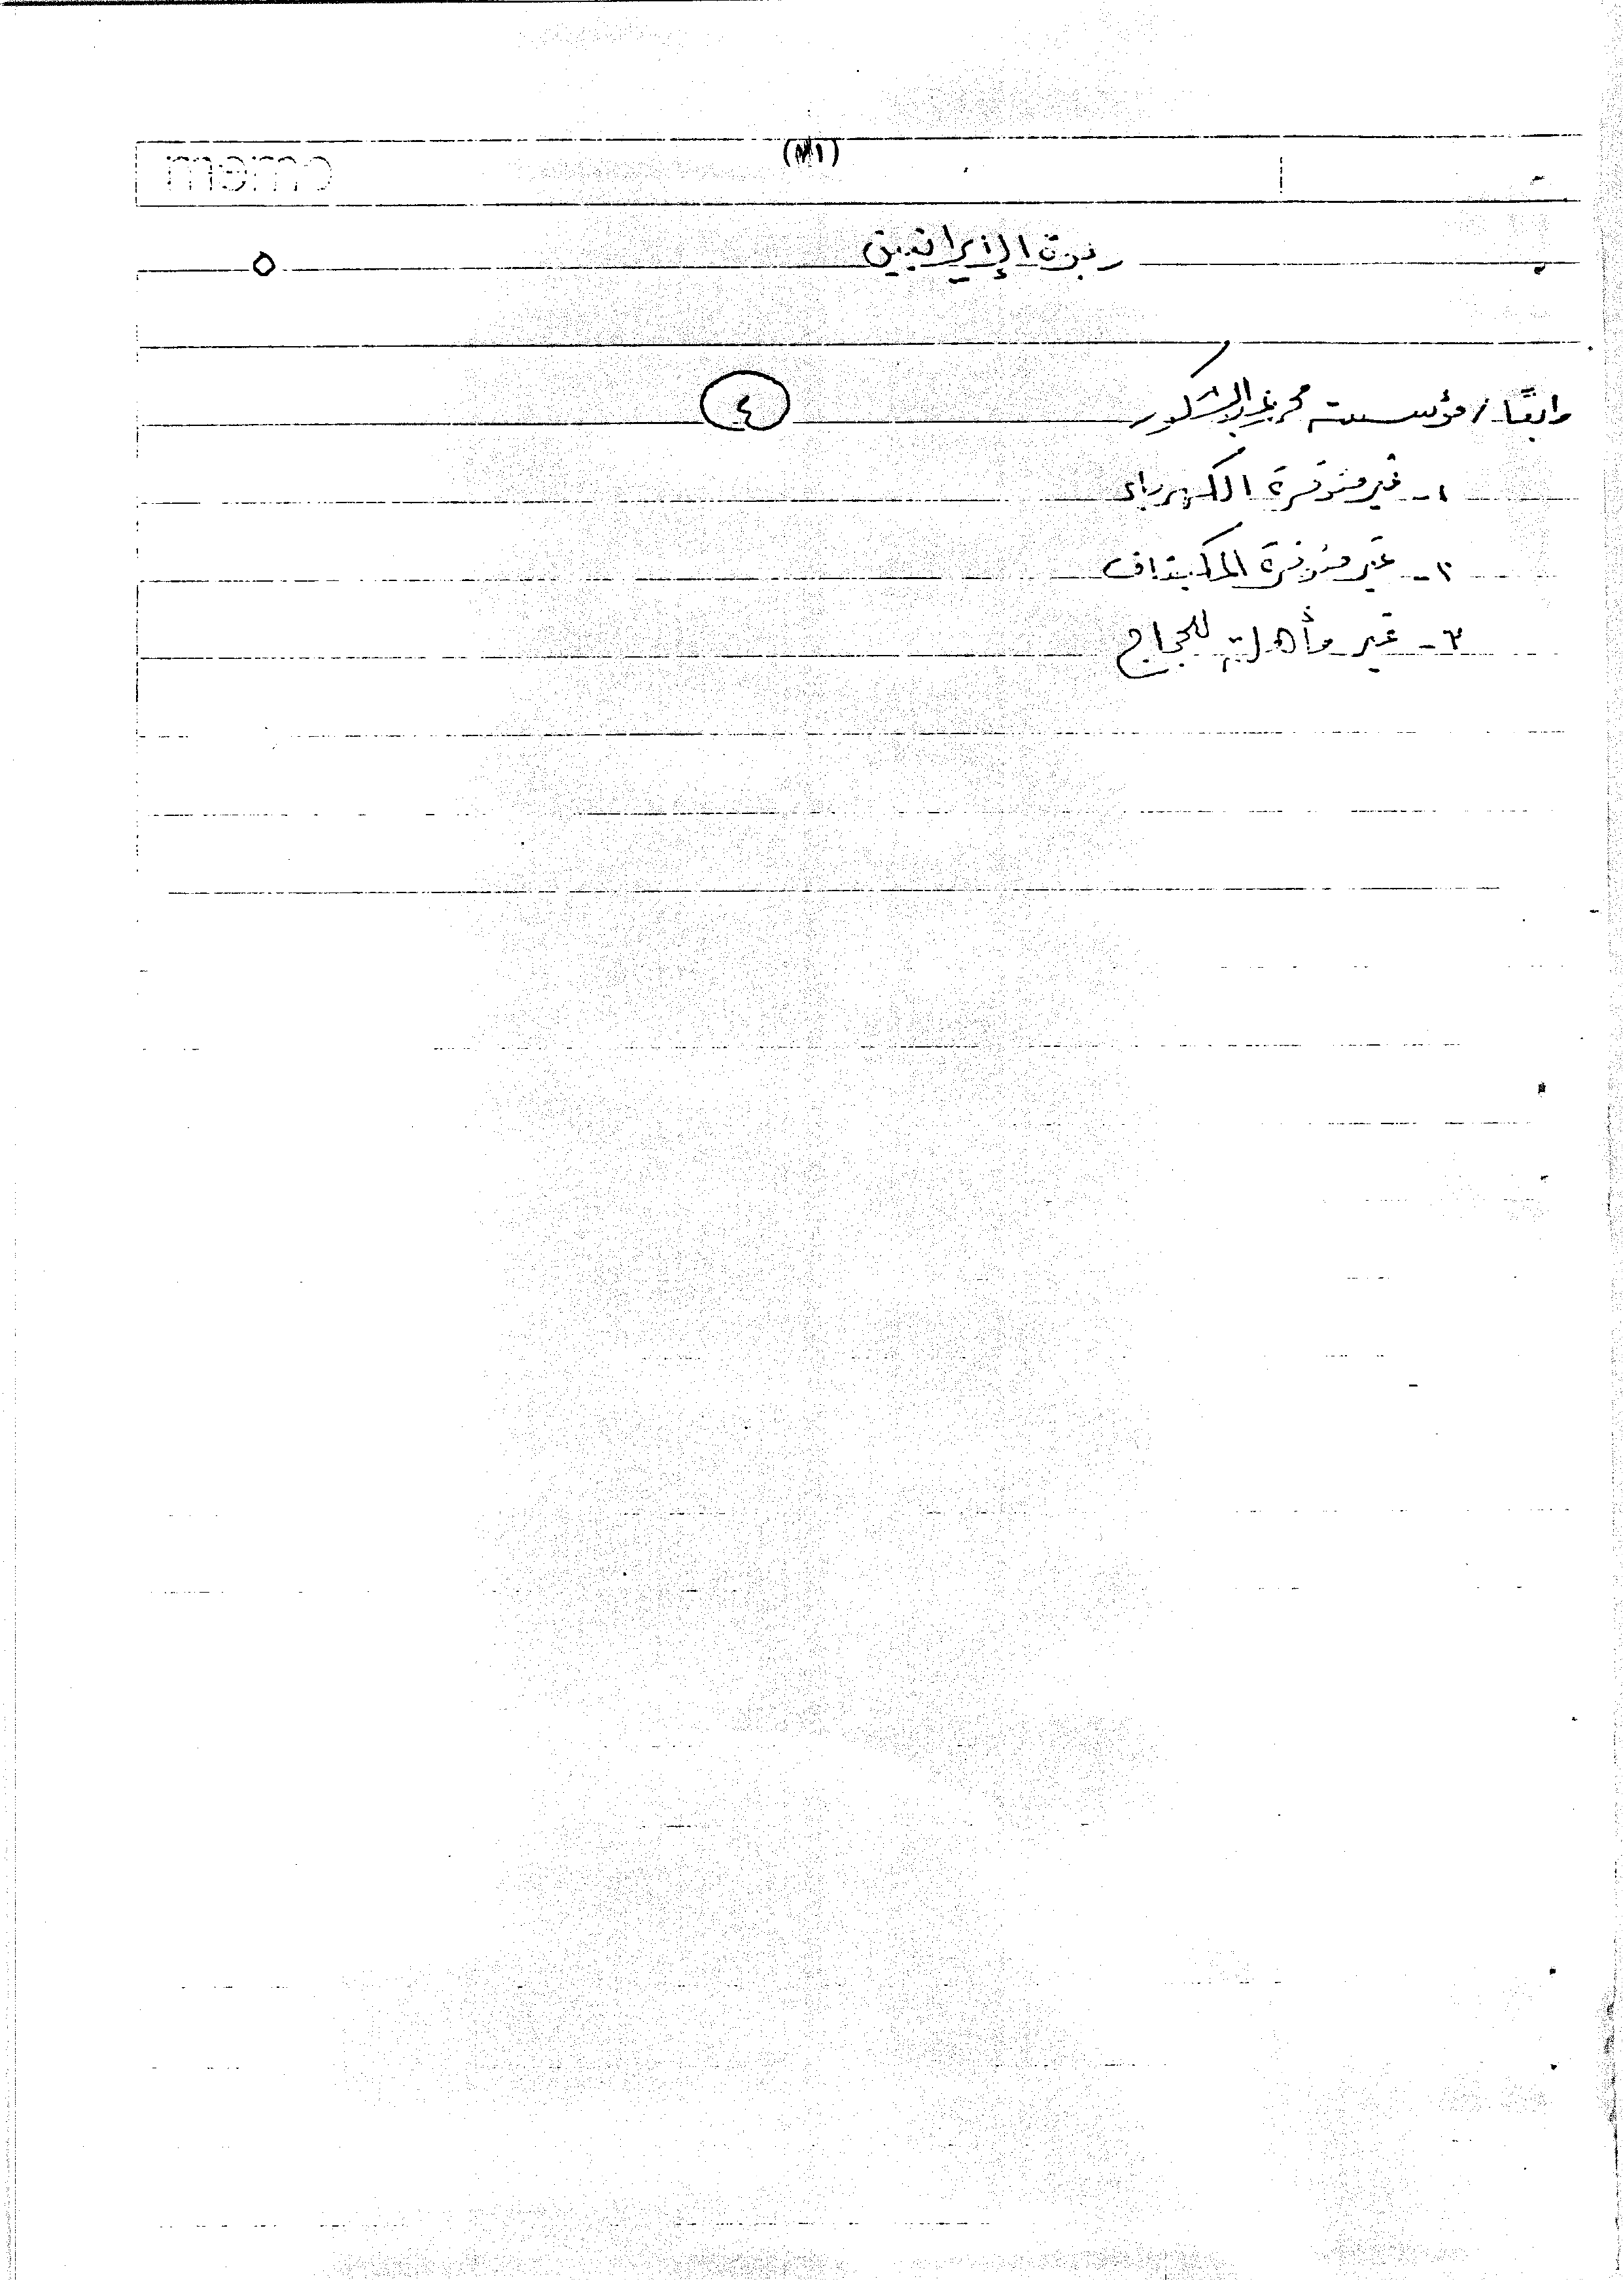 memo
الإيرانيين
٥
رابعًا / مؤسسة محمد عبد الشكور
٤
١- غير متوفرة الكهرباء
٢- غير متوفرة المكيفات
٣- غير مأهلة للحجاج